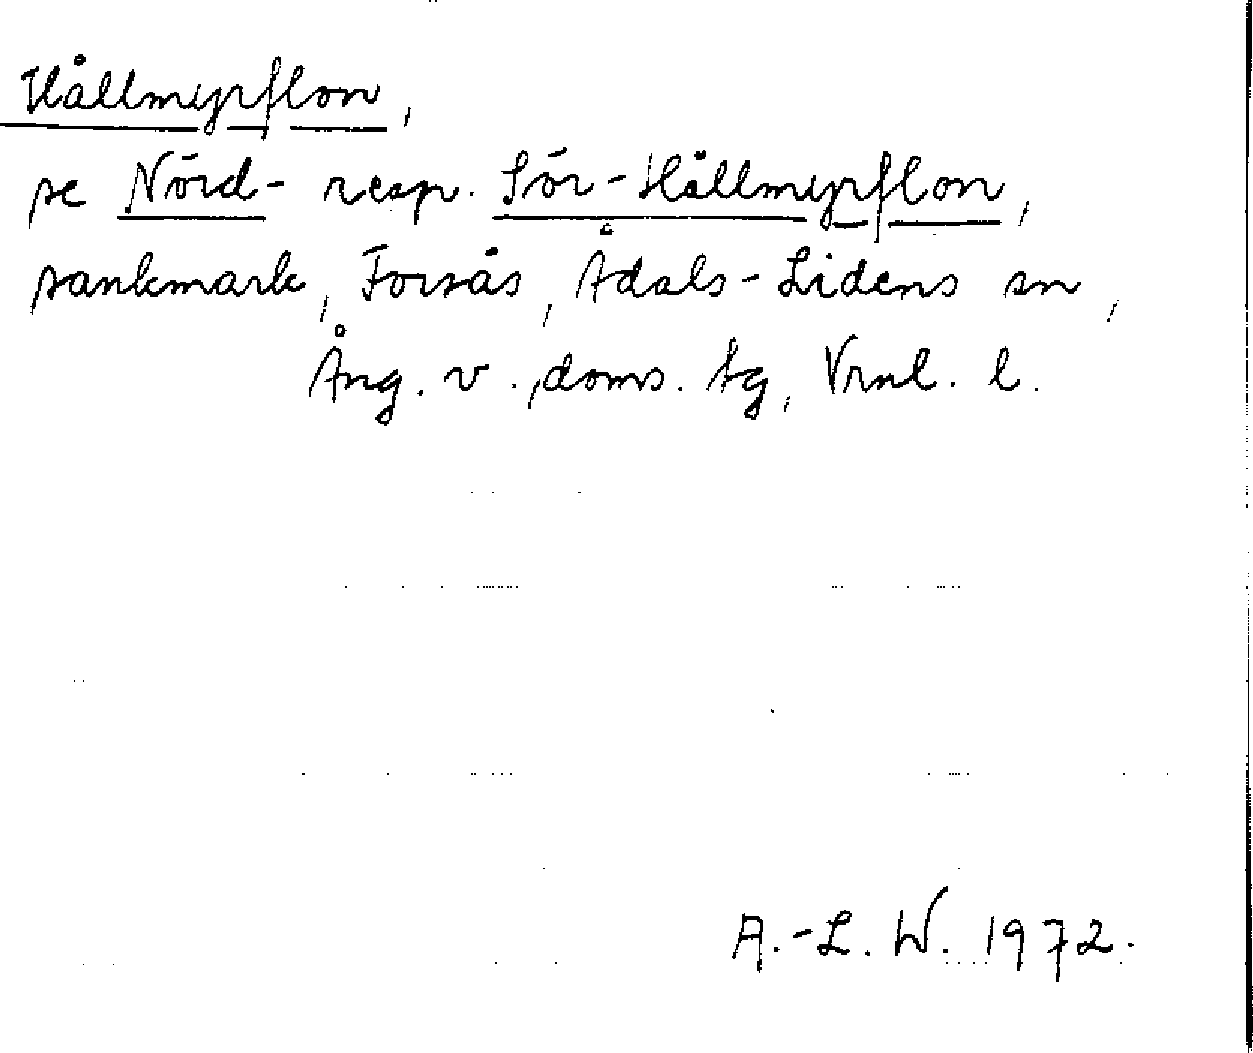 Hållmyrflon,
se Nörd- resp. Sör-Hållmyrflon,
sankmark, Forsås, Ådals-Lidens sn,
Ång. v., doms. tg, Vrnl. l.
A.-L. W. 1972.